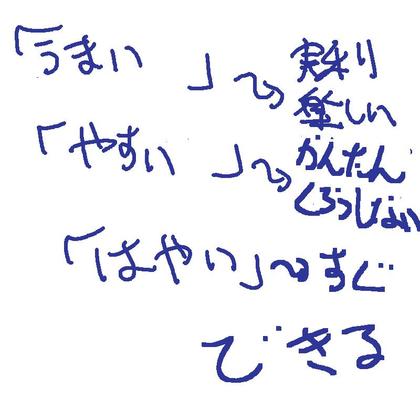 「うまい」〜> 実利
楽しい
「やすい」〜> かんたん
くろうしない
「はやい」〜> すぐ
できる